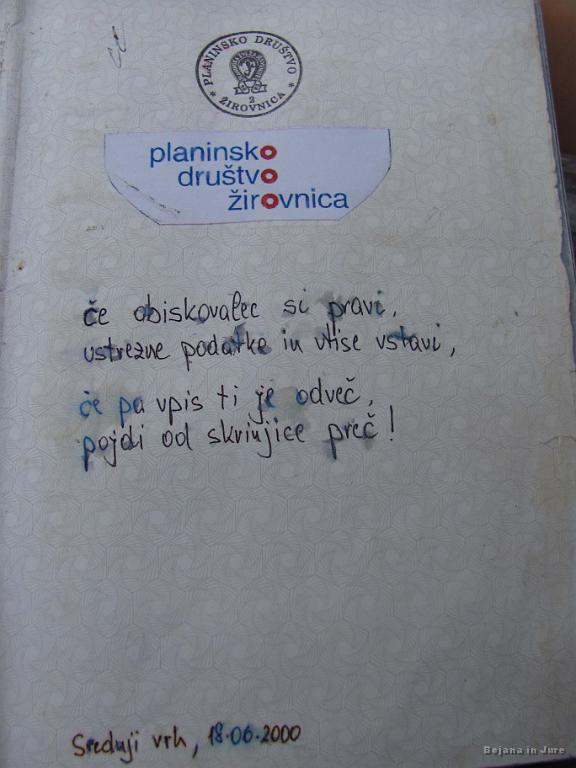 PLANINSKO DRUŠTVO
* 2 *
ŽIROVNICA
planinsko
društvo
žirovnica
če obiskovalec si pravi,
ustrezne podatke in vtise vstavi,
če pa vpis ti je odveč,
pojdi od skrinjice preč!
Srednji vrh, 18.06.2000
Bejana in Jure